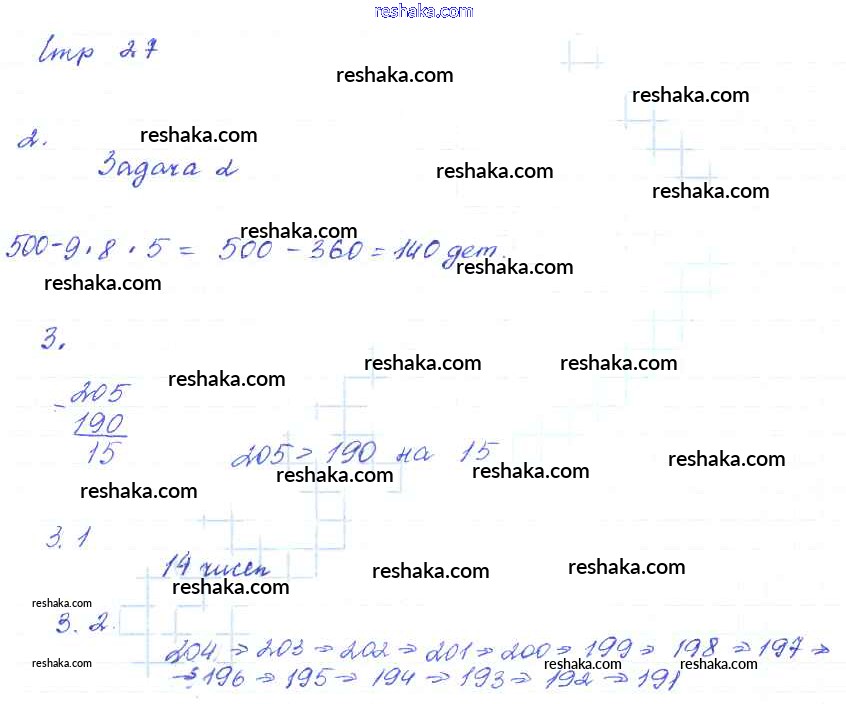 reshaka.com
Стр 27
reshaka.com
reshaka.com
2.
reshaka.com
Задача 2
reshaka.com
reshaka.com
reshaka.com
500-9·8·5 = 500-360=140 дет.
reshaka.com
reshaka.com
3.
reshaka.com
reshaka.com
reshaka.com
- 205
190
15
205 > 190 на 15
reshaka.com
reshaka.com
reshaka.com
reshaka.com
3.1
14 чисел
reshaka.com
reshaka.com
reshaka.com
reshaka.com
3.2.
204 → 203 → 202 → 201 → 200 → 199 → 198 → 197 →
→ 196 → 195 → 194 → 193 → 192 → 191
reshaka.com
reshaka.com
reshaka.com